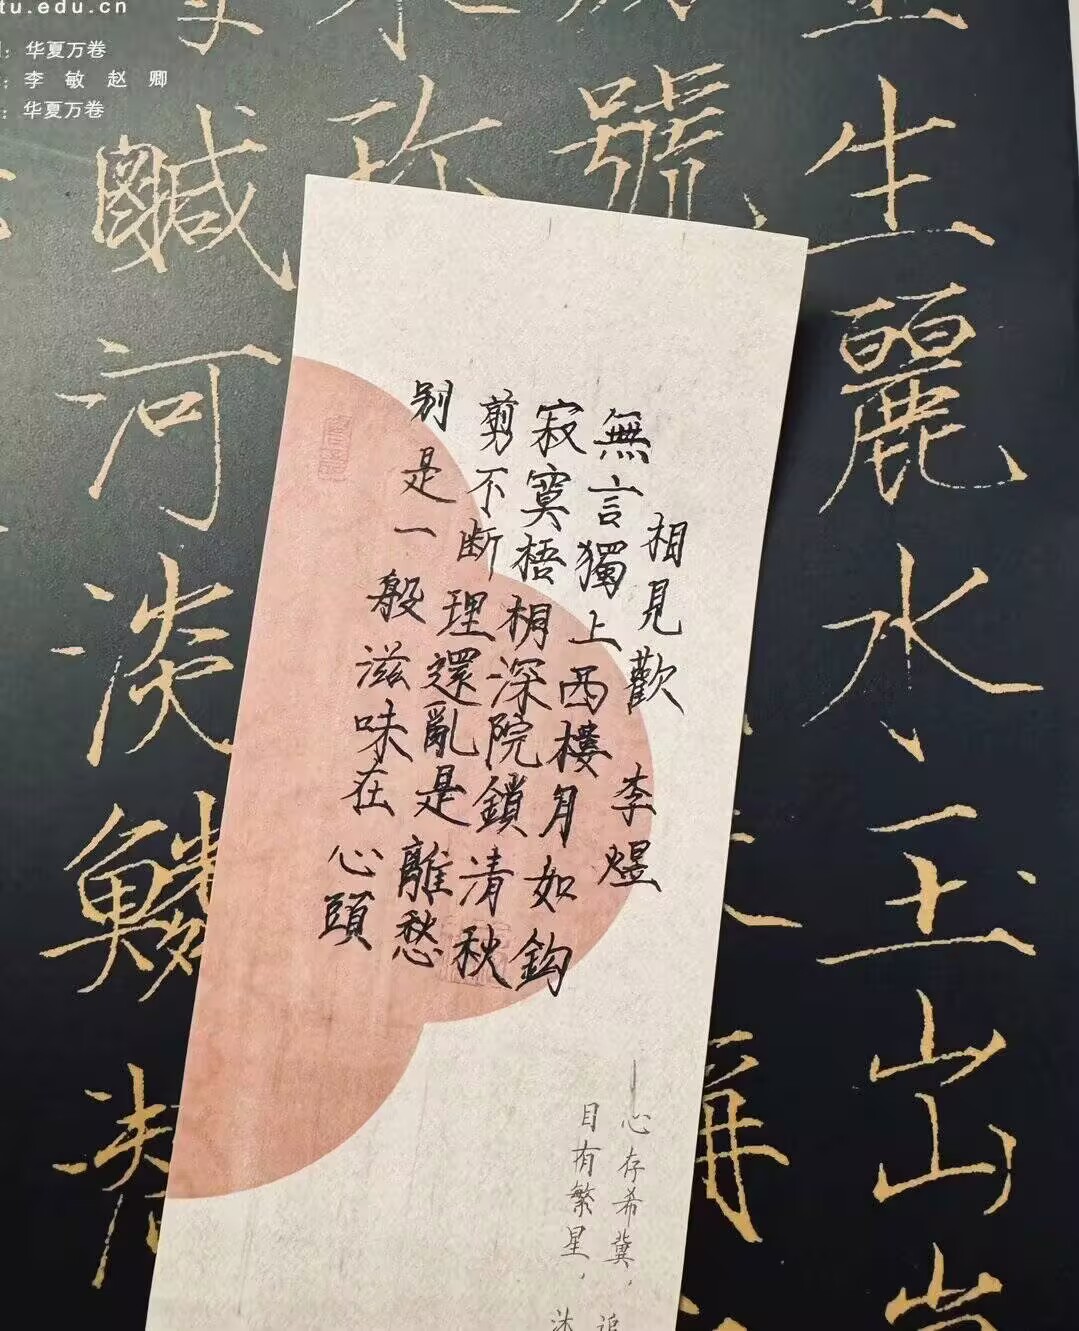 tu.edu.cn
华夏万卷
李敏赵卿
华夏万卷
生麗水玉山
號
鹹河淡鱗
相見歡 李煜
無言獨上西樓月如鈎
寂寞梧桐深院鎖清秋
剪不断理還亂是離愁
别是一般滋味在心頭
心存希冀，追
目有繁星，沐